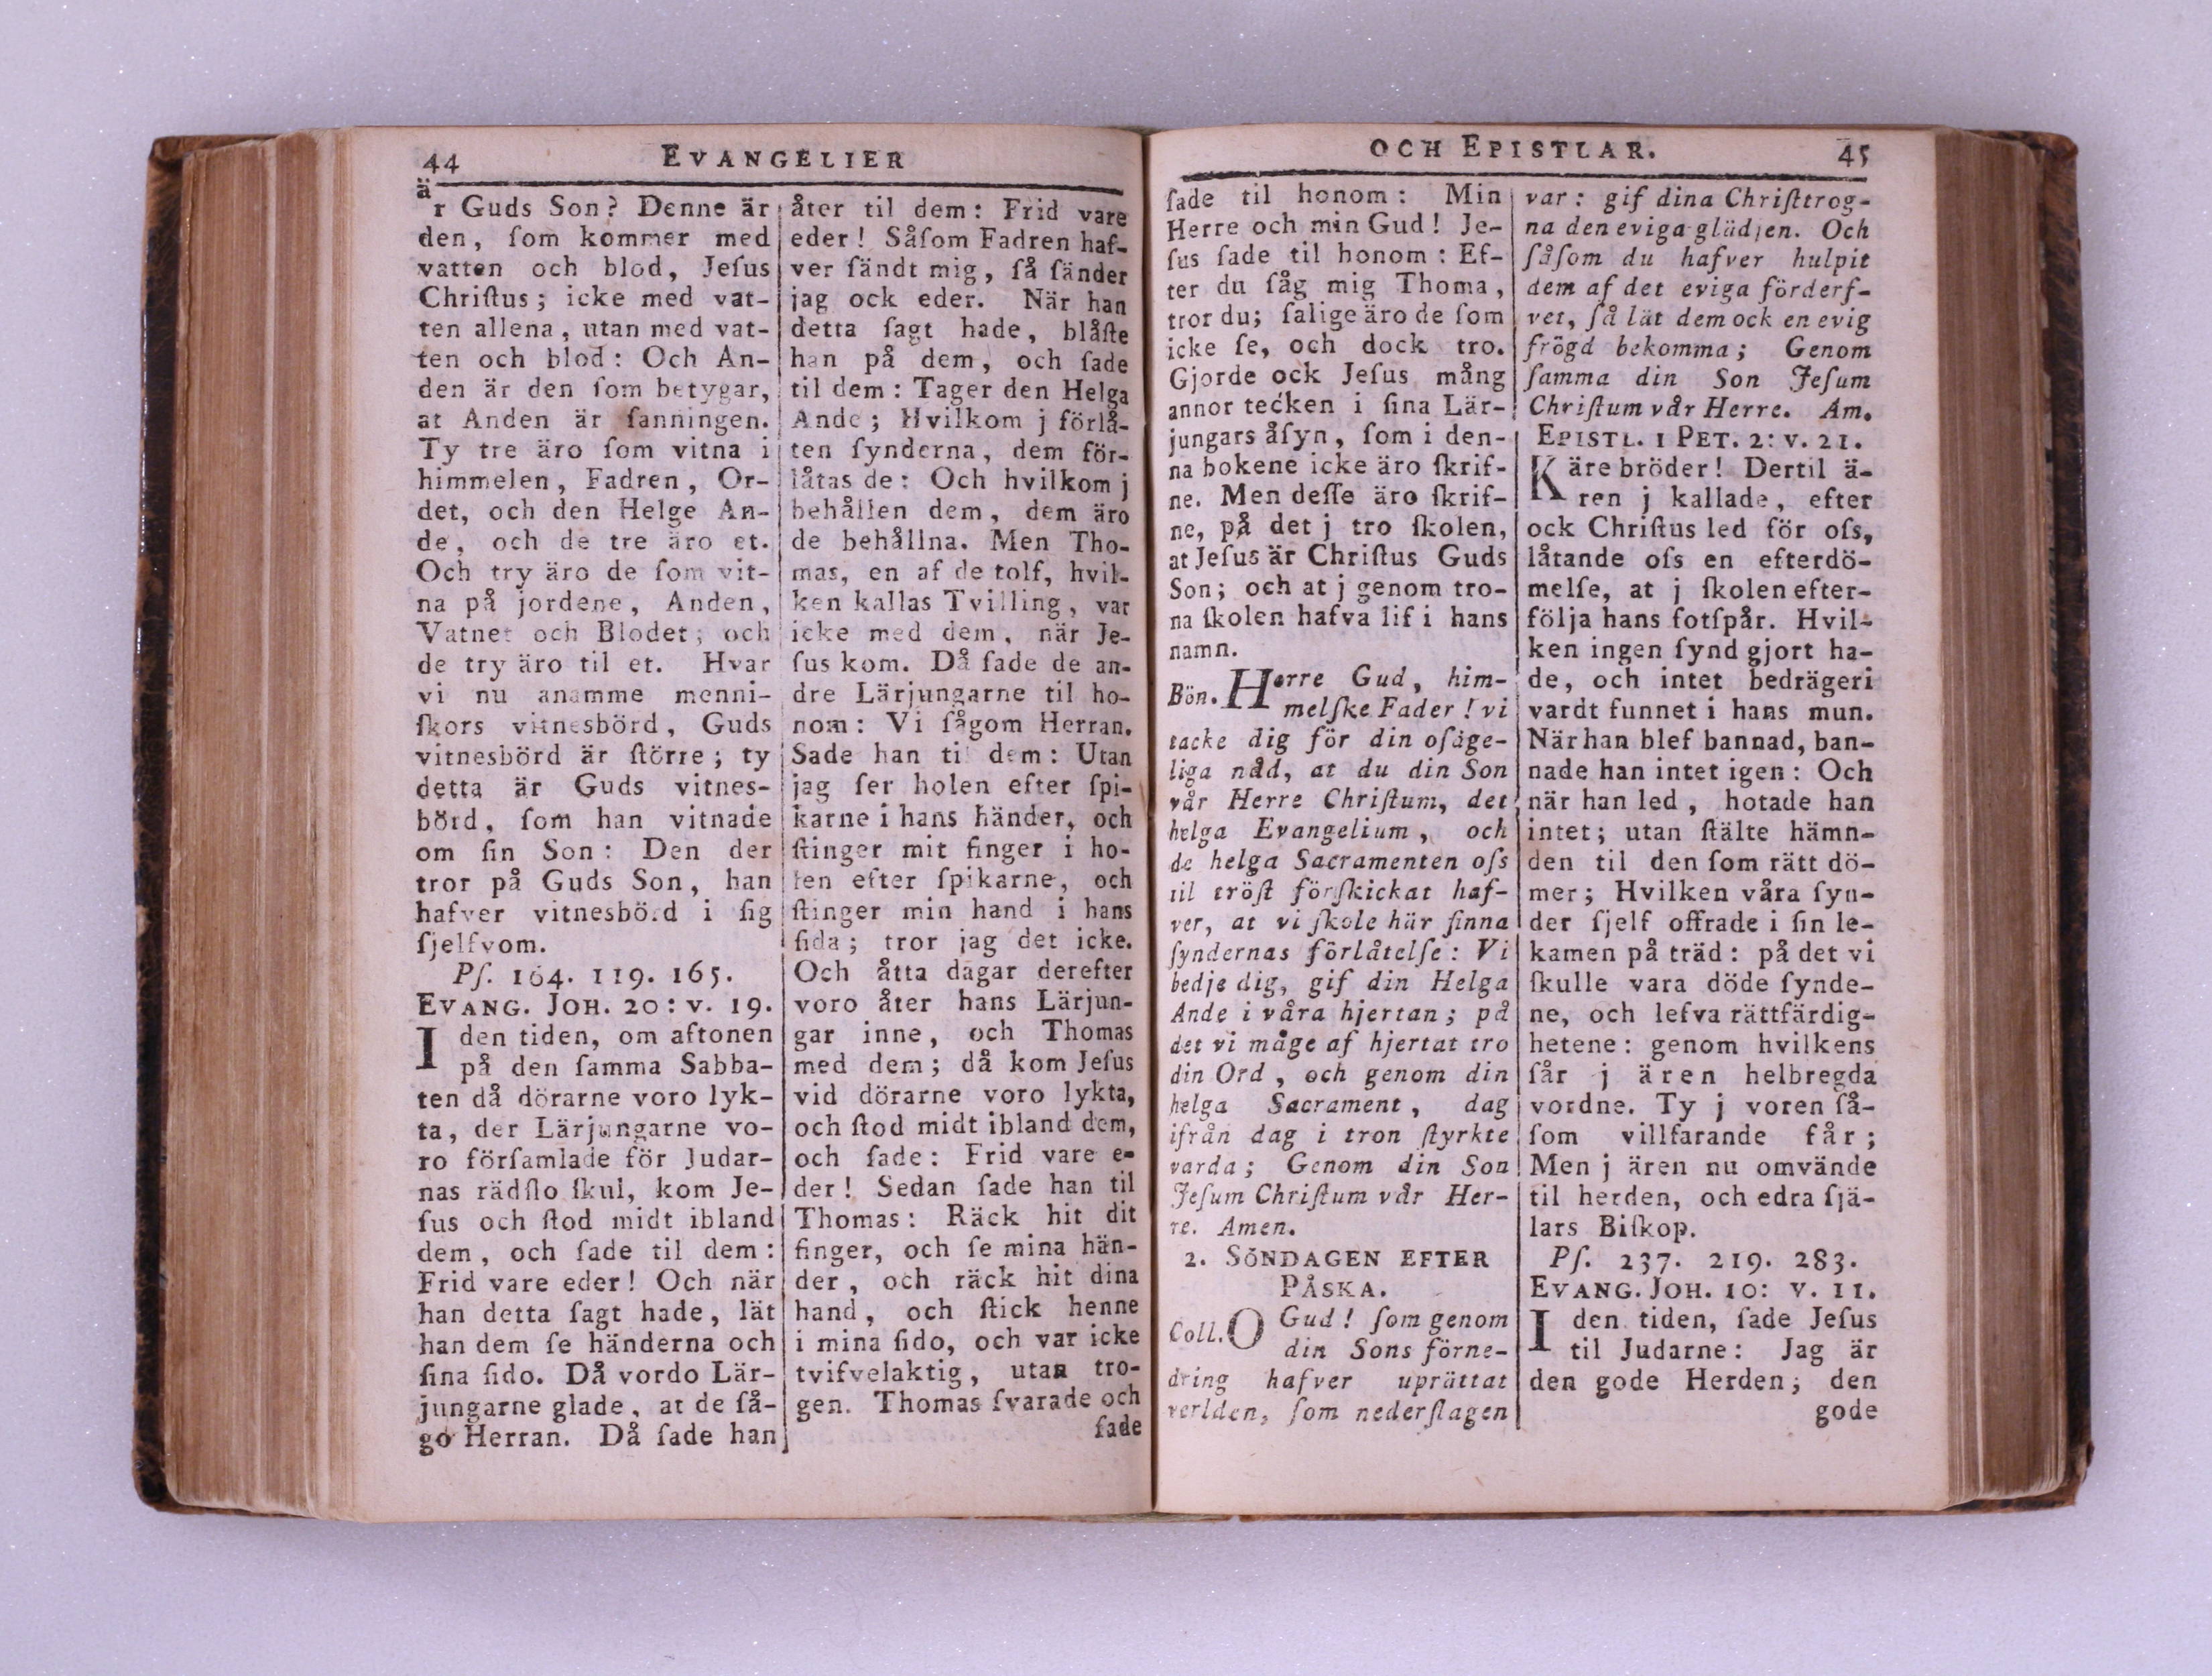 44 EVANGELIER
är Guds Son? Denne är
den, ſom kommer med
vatten och blod, Jeſus
Chriſtus; icke med vat-
ten allena, utan med vat-
ten och blod: Och An-
den är den ſom betygar,
at Anden är ſanningen.
Ty tre äro ſom vitna i
himmelen, Fadren, Or-
det, och den Helge An-
de, och de tre äro et.
Och try äro de ſom vit-
na på jordene, Anden,
Vatnet och Blodet; och
de try äro til et. Hvar
vi nu anamme menni-
ſkors vitnesbörd, Guds
vitnesbörd är ſtörre; ty
detta är Guds vitnes-
börd, ſom han vitnade
om ſin Son: Den der
tror på Guds Son, han
hafver vitnesbörd i ſig
ſjelfvom.
Pſ. 164. 119. 165.
EVANG. JOH. 20: v. 19.
I den tiden, om aftonen
på den ſamma Sabba-
ten då dörarne voro lyk-
ta, der Lärjungarne vo-
ro förſamlade för Judar-
nas rädſlo ſkul, kom Je-
ſus och ſtod midt ibland
dem, och ſade til dem:
Frid vare eder! Och när
han detta ſagt hade, lät
han dem ſe händerna och
ſina ſido. Då vordo Lär-
jungarne glade, at de ſå-
go Herran. Då ſade han
åter til dem: Frid vare
eder! Såſom Fadren haf-
ver ſändt mig, ſå ſänder
jag ock eder. När han
detta ſagt hade, blåſte
han på dem, och ſade
til dem: Tager den Helga
Ande; Hvilkom j förlå-
ten ſynderna, dem för-
låtas de: Och hvilkom j
behållen dem, dem äro
de behållna. Men Tho-
mas, en af de tolf, hvil-
ken kallas Tvilling, var
icke med dem, när Je-
ſus kom. Då ſade de an-
dre Lärjungarne til ho-
nom: Vi ſågom Herran.
Sade han til dem: Utan
jag ſer holen efter ſpi-
karne i hans händer, och
ſtinger mit finger i ho-
len efter ſpikarne, och
ſtinger min hand i hans
ſida; tror jag det icke.
Och åtta dagar derefter
voro åter hans Lärjun-
gar inne, och Thomas
med dem; då kom Jeſus
vid dörarne voro lykta,
och ſtod midt ibland dem,
och ſade: Frid vare e-
der! Sedan ſade han til
Thomas: Räck hit dit
finger, och ſe mina hän-
der, och räck hit dina
hand, och ſtick henne
i mina ſido, och var icke
tvifvelaktig, utan tro-
gen. Thomas ſvarade och
ſade
OCH EPISTLAR. 45
ſade til honom: Min
Herre och min Gud! Je-
ſus ſade til honom: Ef-
ter du ſåg mig Thoma,
tror du; ſalige äro de ſom
icke ſe, och dock tro.
Gjorde ock Jeſus mång
annor tecken i ſina Lär-
jungars åſyn, ſom i den-
na bokene icke äro ſkrif-
ne. Men deſſe äro ſkrif-
ne, på det j tro ſkolen,
at Jeſus är Chriſtus Guds
Son; och at j genom tro-
na ſkolen hafva lif i hans
namn.
Bön. Herre Gud, him-
melſke Fader! vi
tacke dig för din oſäge-
liga nåd, at du din Son
vår Herre Chriſtum, det
helga Evangelium, och
de helga Sacramenten oſs
til tröſt förſkickat haf-
ver, at vi ſkole här finna
ſyndernas förlåtelſe: Vi
bedje dig, gif din Helga
Ande i våra hjertan; på
det vi måge af hjertat tro
din Ord, och genom din
helga Sacrament, dag
ifrån dag i tron ſtyrkte
varda; Genom din Son
Jeſum Chriſtum vår Her-
re. Amen.
2. SÖNDAGEN EFTER
PÅSKA.
Coll. O Gud! ſom genom
din Sons förne-
dring hafver uprättat
verlden, ſom nederſlagen
var: gif dina Chriſttrog-
na den eviga glädjen. Och
ſåſom du hafver hulpit
dem af det eviga förderf-
vet, ſå lät dem ock en evig
frögd bekomma; Genom
ſamma din Son Jeſum
Chriſtum vår Herre. Am.
EPISTL. 1 PET. 2: v. 21.
Käre bröder! Dertil ä-
ren j kallade, efter
ock Chriſtus led för oſs,
låtande oſs en efterdö-
melſe, at j ſkolen efter-
följa hans fotſpår. Hvil-
ken ingen ſynd gjort ha-
de, och intet bedrägeri
vardt funnet i hans mun.
När han blef bannad, ban-
nade han intet igen: Och
när han led, hotade han
intet; utan ſtälte hämn-
den til den ſom rätt dö-
mer; Hvilken våra ſyn-
der ſjelf offrade i ſin le-
kamen på träd: på det vi
ſkulle vara döde ſynde-
ne, och lefva rättfärdig-
hetene: genom hvilkens
ſår j ären helbregda
vordne. Ty j voren ſå-
ſom villfarande får;
Men j ären nu omvände
til herden, och edra ſjä-
lars Biſkop.
Pſ. 237. 219. 283.
EVANG. JOH. 10: v. 11.
I den tiden, ſade Jeſus
til Judarne: Jag är
den gode Herden; den
gode